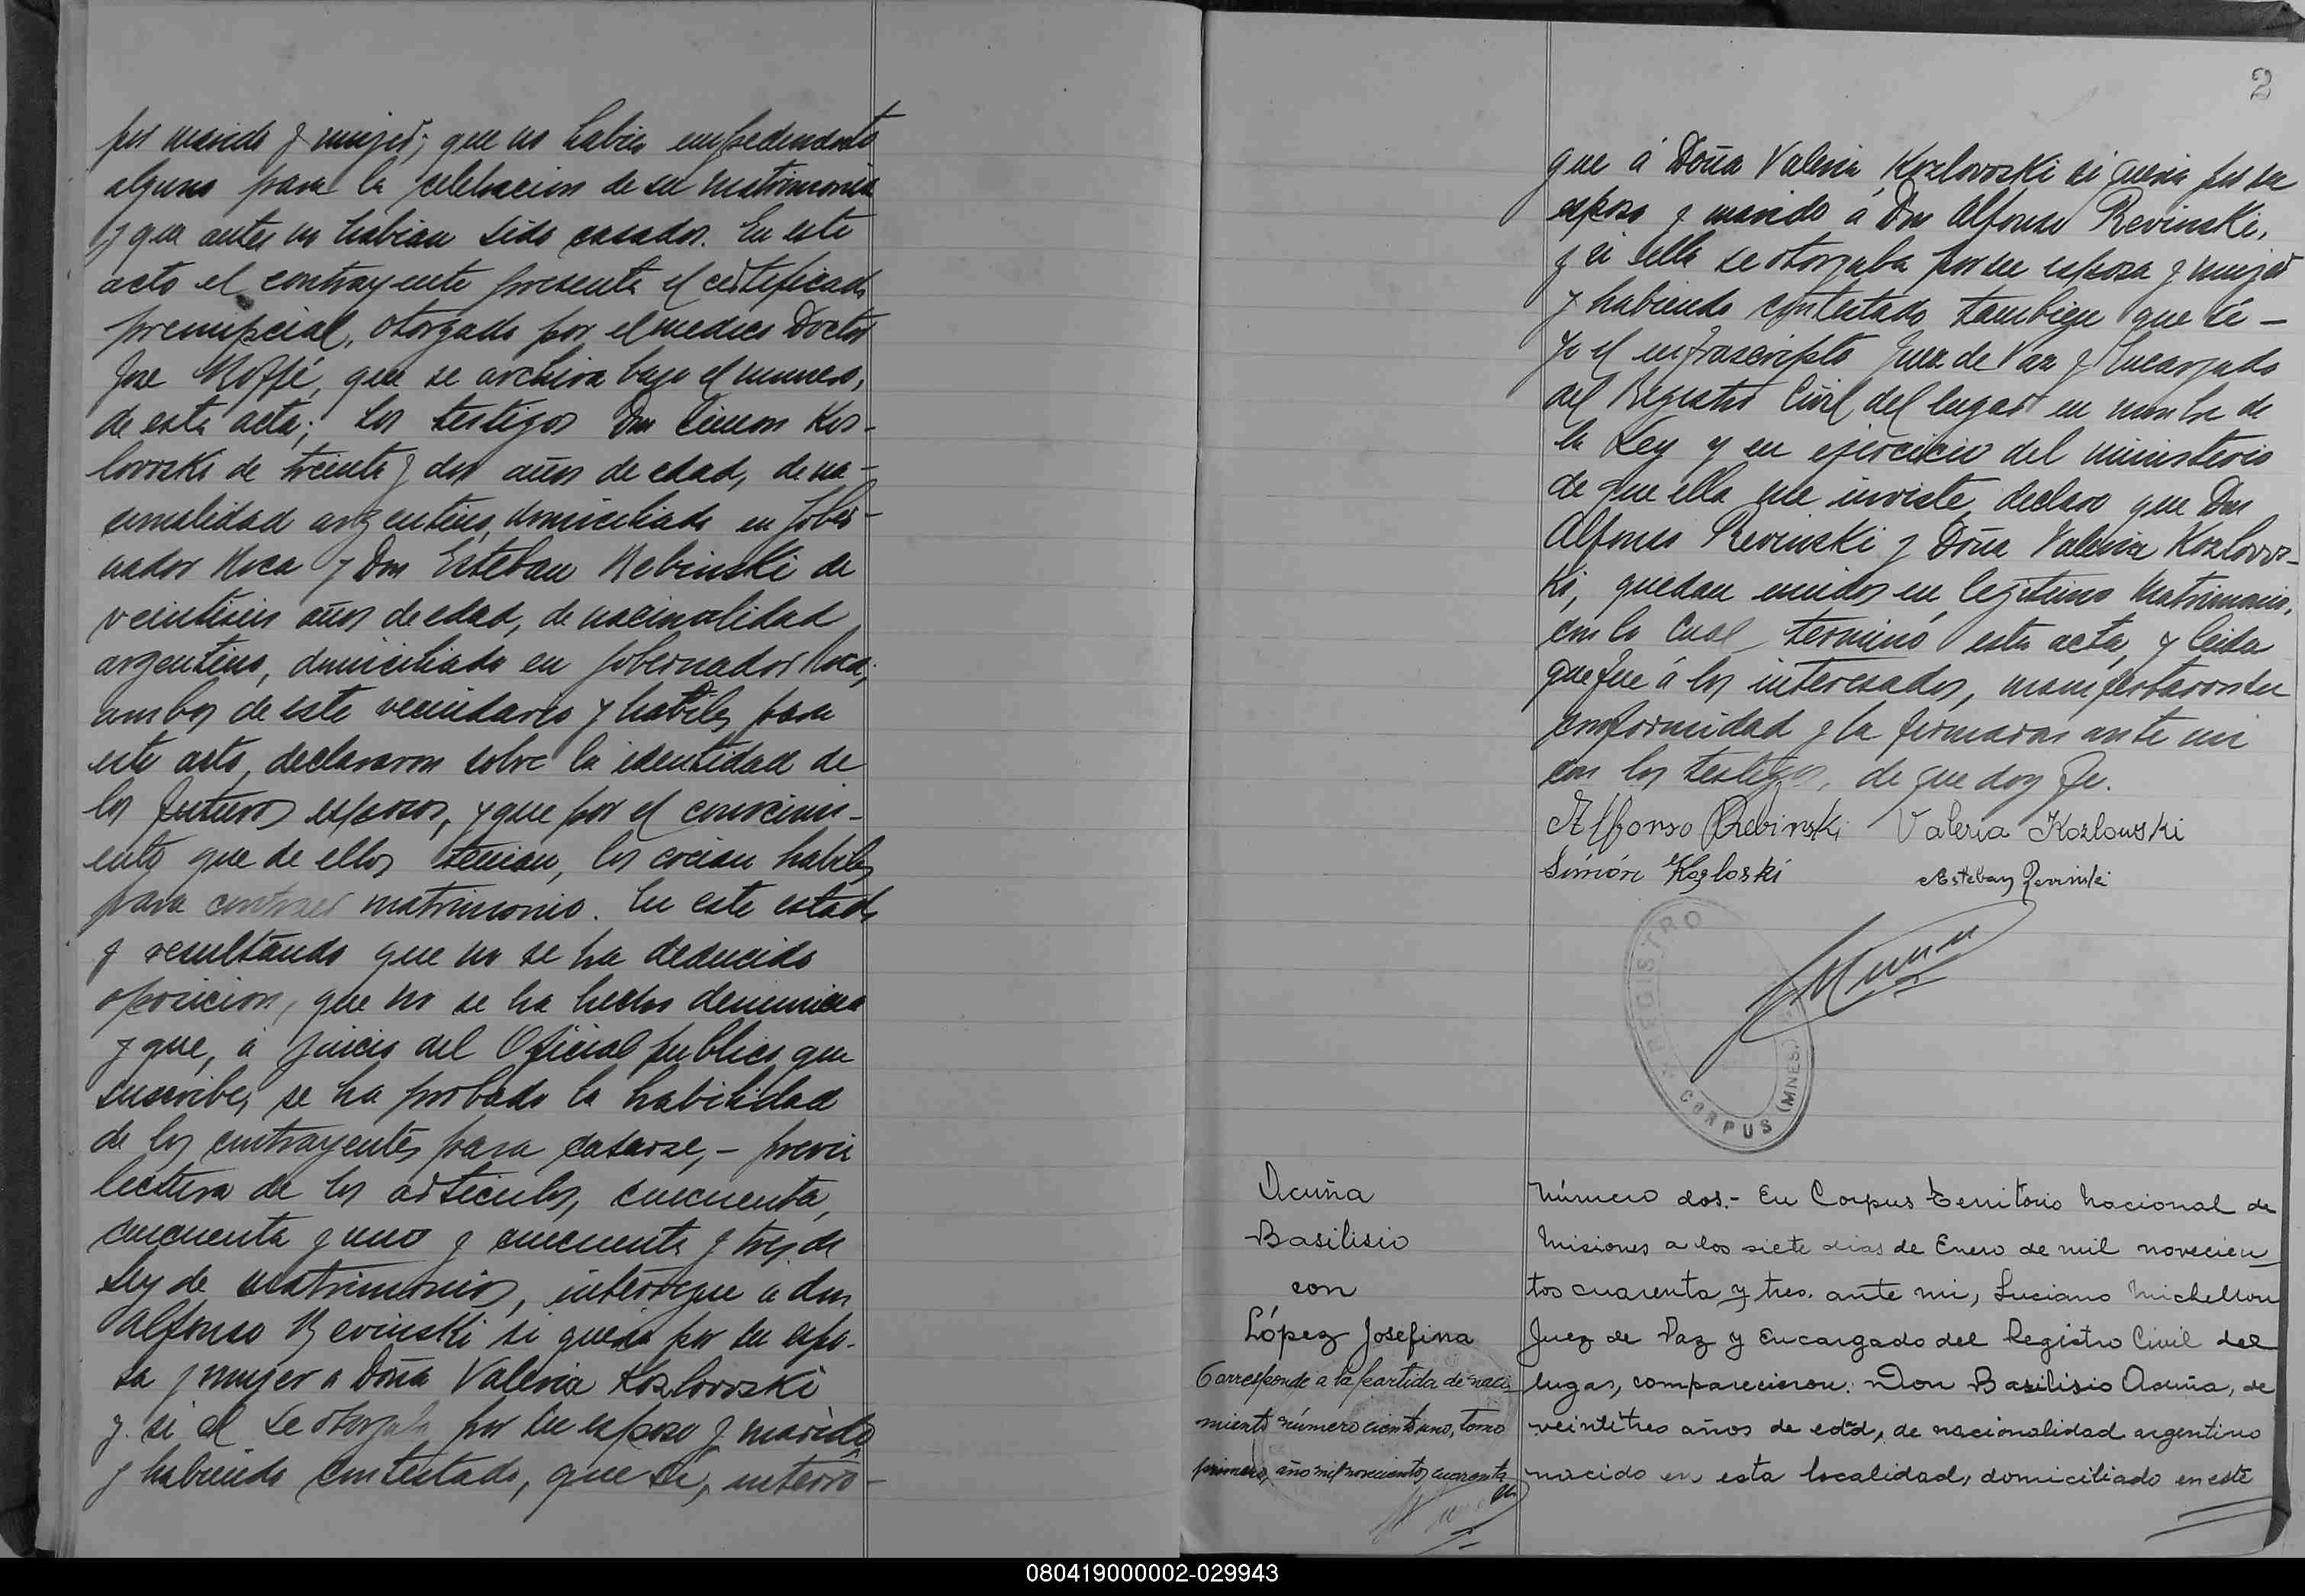 por marido y mujer; que no habia empedimento
alguno para la celebracion de su matrimonio
y que antes no habian sido casados. En este
acto el contrayente presenta el certificado
prenupcial, otorgado por el medico Doctor
Jose Roffé, que se archiva bajo el numero,
de esta acta; los testigos Don Simon Kos-
lovoski de treinta y dos años de edad, de na-
cionalidad argentino, domiciliado en Gober-
nador Roca y Don Esteban Rebinski de
veintiseis años de edad, de nacionalidad
argentino, domiciliado en Gobernador Roca;
ambos de este vecindario y habiles para
este acto, declararon sobre la identidad de
los futuros esposos, y que por el conocimi-
ento que de ellos tenian, los cocian habiles
para contraer matrimonio. En este estado
y resultando que no se ha deducido
oposicion, que no se ha hecho denuncia
y que, á juicio del Oficial publico que
suscribe, se ha probado la habilidad
de los contrayentes para casarse, - previa
lectura de los articulos, cincuenta,
cincuenta y uno y cincuenta y tres de
Ley de matrimonio, interogue a don
Alfonso Revinski si queria por su espo-
sa y mujer a Doña Valeria Kozlovoski
y si el se otorgaba por su esposo y marido
y habiendo contestado, que si, interro-
2
gue á Doña Valeria Kozlovoski si queria por su
esposo y marido á Don Alfonso Revinski,
y si ella se otorgaba por su esposa y mujer
y habiendo contestado tambien que si -
yo el infrascripto Juez de Paz y Encargado
del Registro Civil del lugar en nombre de
la Ley y en ejercicio del ministerio
de que ella me inviste, declaro que Don
Alfonso Revinski y Doña Valeria Kozlovos-
ki, quedan unidos en legitimo Matrimonio,
con lo cual terminó esta acta, y leida
que fue á los interesados, manifestaron su
conformidad y la firmaron ante mi
con los testigos, de que doy fe.
Alfonso Rebinski Valeria Kozlowski
Simón Kozloski Esteban Revinski
REGISTRO
CORPUS (MNES.)
Acuña
Basilisio
con
López Josefina
Corresponde a la partida de naci
miento número ciento uno, tomo
primero, año mil novecientos cuarenta
Número dos.- En Corpus Territorio Nacional de
Misiones a los siete dias de Enero de mil novecien
tos cuarenta y tres. ante mi, Luciano Michelson
Juez de Paz y Encargado del Registro Civil del
lugar, comparecieron: Don Basilisio Acuña, de
veintitres años de edad, de nacionalidad argentino
nacido en esta localidad, domiciliado en este
080419000002-029943